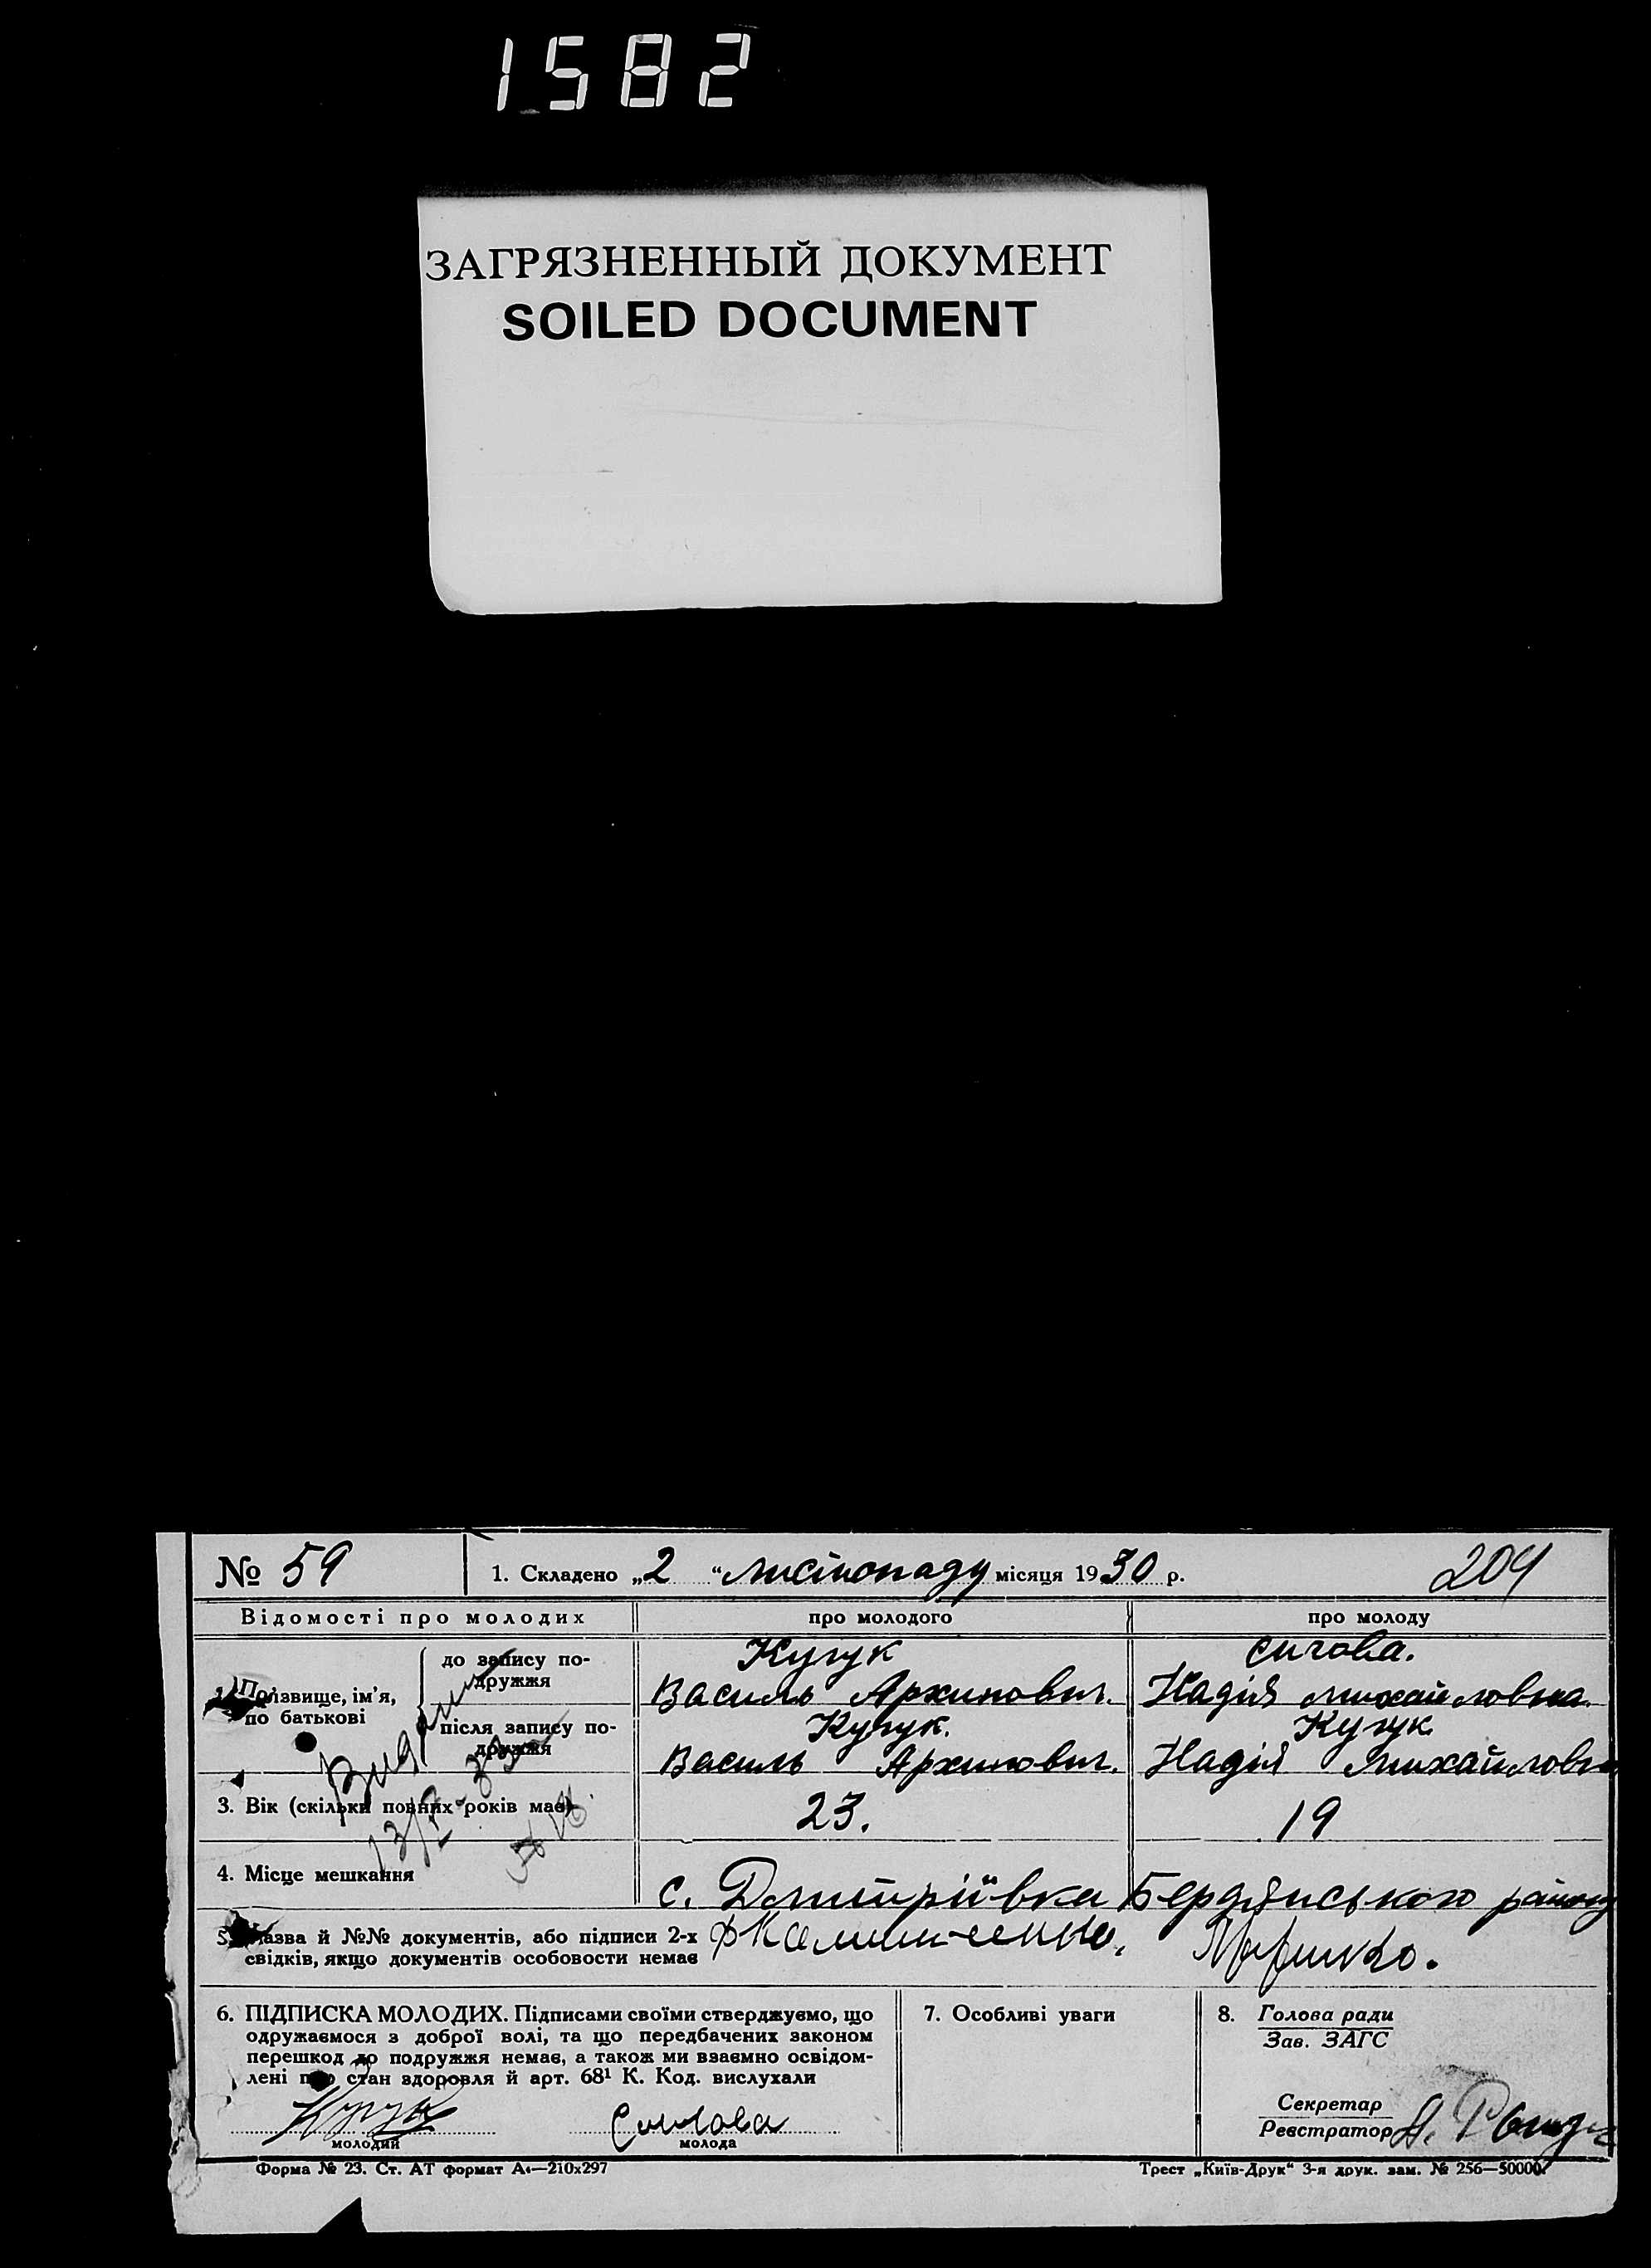 1582
ЗАГРЯЗНЕННЫЙ ДОКУМЕНТ
SOILED DOCUMENT
№ 59
1. Складено „2“ листопаду місяця 1930 р.
204
Відомості про молодих
про молодого
про молоду
Прізвище, ім’я, по батькові
до запису подружжя
Кучук
Василь Архипович.
Сичова.
Надія Михайловна.
після запису подружжя
Кучук.
Василь Архипович.
Кучук
Надія Михайловна
3. Вік (скільки повних років має)
23.
19
4. Місце мешкання
с. Дмитріївка Бердянського району
5. Назва й №№ документів, або підписи 2-х
свідків, якщо документів особовости немає
6. ПІДПИСКА МОЛОДИХ. Підписами своїми стверджуємо, що
одружаємося з доброї волі, та що передбачених законом
перешкод до подружжя немає, а також ми взаємно освідом-
лені про стан здоровля й арт. 68¹ К. Код. вислухали
Кучук
молодий
Сичова
молода
7. Особливі уваги
8. Голова ради
Зав. ЗАГС
Секретар
Реєстратор
Форма № 23. Ст. АТ формат А4—210x297
Трест „Київ-Друк“ 3-я друк. зам. № 256—50000.